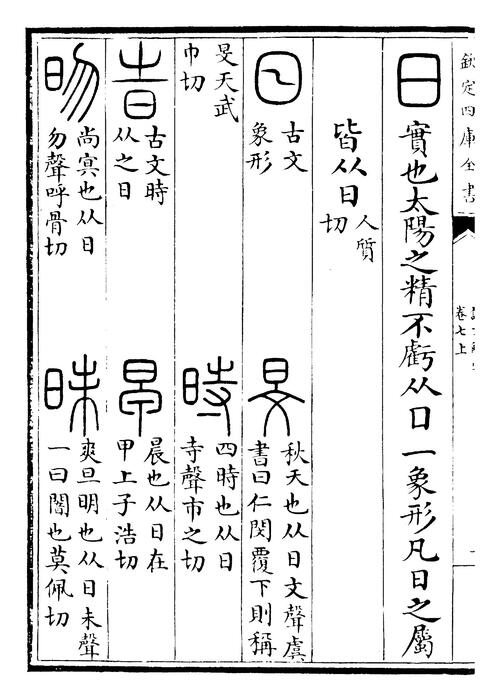 欽定四庫全書
卷七上
日
實也太陽之精不虧从口一象形凡日之屬
皆从日人質
切
日
古文
象形
旻
秋天也从日文聲虞
書曰仁閔覆下則稱
旻天武
巾切
時
四時也从日
寺聲市之切
旹
古文時
从之日
早
晨也从日在
甲上子浩切
昒
尚冥也从日
勿聲呼骨切
昧
爽旦明也从日未聲
一曰闇也莫佩切